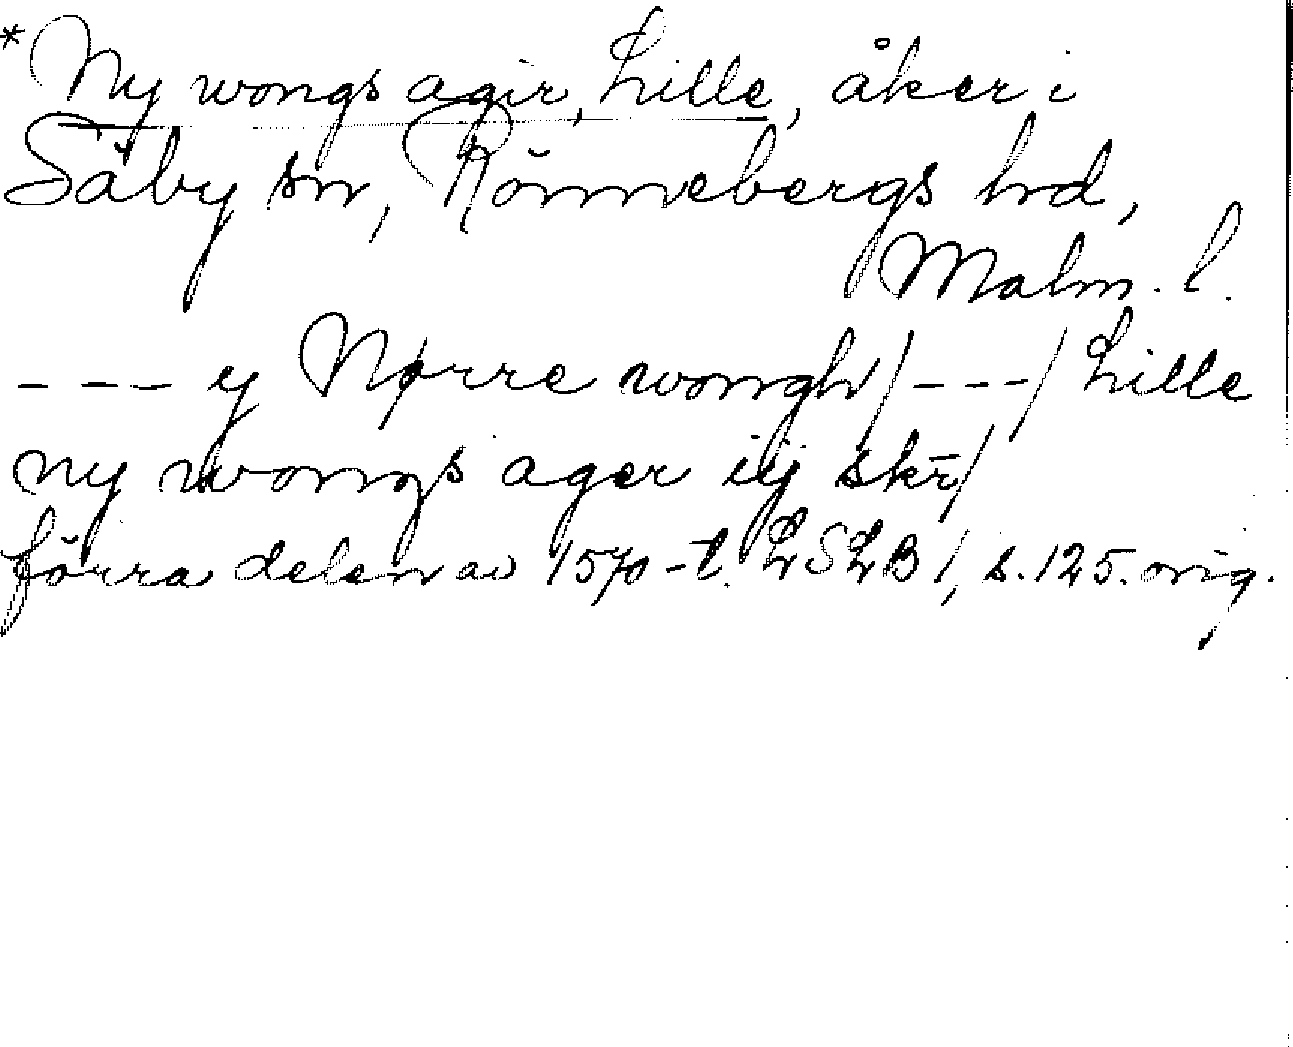 * Ny wongs agir, Lille, åker i
Säby sn, Rönnebergs hd,
Malm. l.
- - - y Nørre wongh/ - - - / Lille
ny wongs ager iij skr̄/
förra delen av 1570-t. LSLB 1, s. 125. orig.